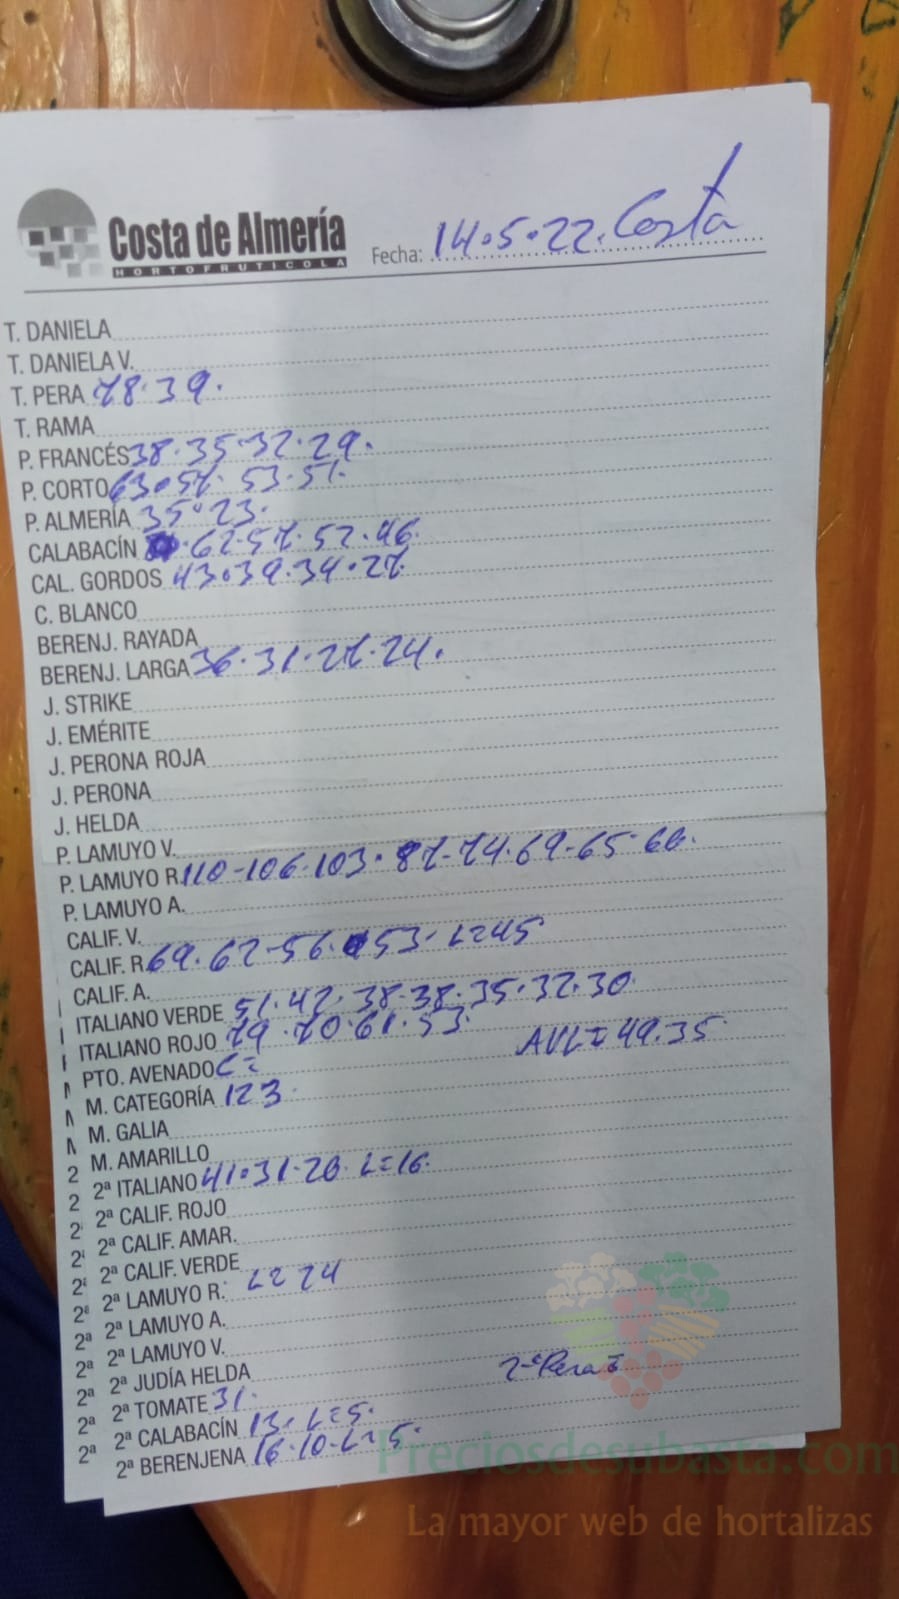 Costa de Almería
HORTOFRUTICOLA
Fecha: 14.5.22. Costa
T. DANIELA
T. DANIELA V.
T. PERA 78.39.
T. RAMA
P. FRANCÉS 38.35.32.29.
P. CORTO 63.57.53.51.
P. ALMERÍA 35.23.
CALABACÍN 62.57.52.46.
CAL. GORDOS 43.39.34.27.
C. BLANCO
BERENJ. RAYADA
BERENJ. LARGA 36.31.27.24.
J. STRIKE
J. EMÉRITE
J. PERONA ROJA
J. PERONA
J. HELDA
P. LAMUYO V.
P. LAMUYO R. 110-106.103.87-74.69-65.66.
P. LAMUYO A.
CALIF. V.
CALIF. R. 69.62-56.53. L=45
CALIF. A.
ITALIANO VERDE 51.42.38-38.35.32.30.
ITALIANO ROJO 79.70.61.53.
PTO. AVENADO C= AVL=49.35
M. CATEGORÍA 123.
M. GALIA
M. AMARILLO
2ª ITALIANO 41.31.20. L=16.
2ª CALIF. ROJO
2ª CALIF. AMAR.
2ª CALIF. VERDE
2ª LAMUYO R. L=24
2ª LAMUYO A.
2ª LAMUYO V.
2ª JUDÍA HELDA
2ª TOMATE 31. 2ª Pera
2ª CALABACÍN 13. L=5.
2ª BERENJENA 16.10-L=5.
Preciosdesubasta.com
La mayor web de hortalizas